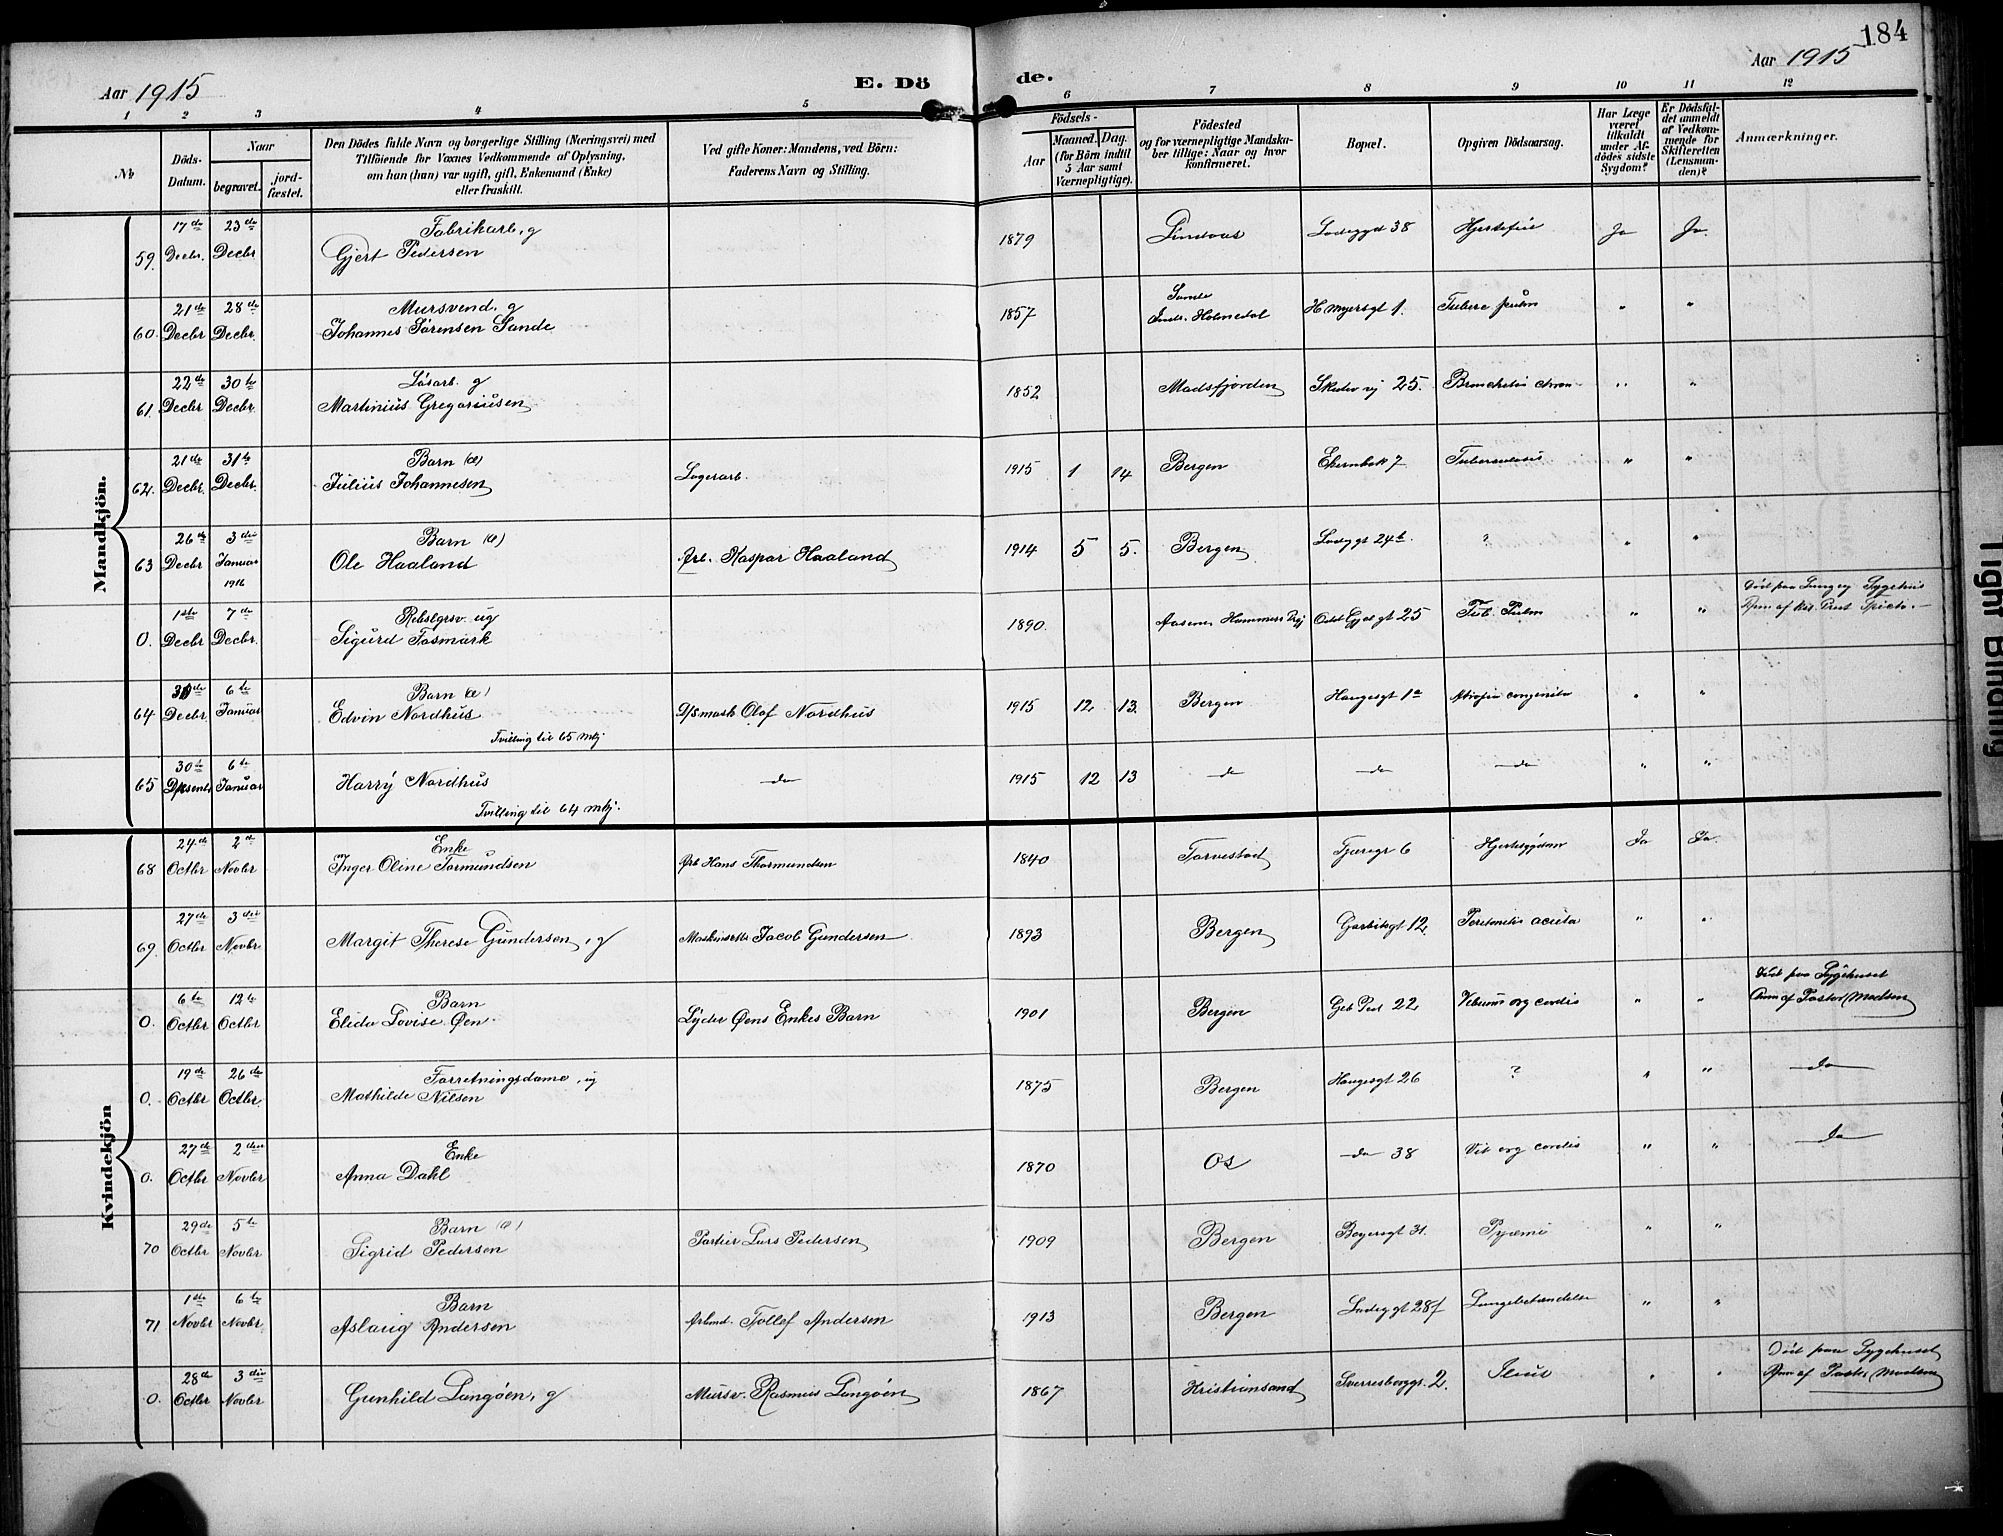 184
Aar 1915
E. Dö
de.
Aar 1915
1 2 3 4 5 6 7 8 9 10 11 12
№
Döds-
Datum.
Naar
begravet.
jord-
fæstet.
Den Dödes fulde Navn og borgerlige Stilling (Næringsvei) med
Tilföiende for Voxnes Vedkommende af Oplysning,
om han (hun) var ugift, gift, Enkemand (Enke)
eller fraskilt.
Ved gifte Koner: Mandens, ved Börn:
Faderens Navn og Stilling.
Födsels-
Aar
Maaned. Dag.
(for Börn indtil
5 Aar samt
Værnepligtige).
Födested
og for værnepligtige Mandska-
ber tillige: Naar og hvor
konfirmeret.
Bopæl.
Opgiven Dödsaarsag.
Har Læge
været
tilkaldt
under Af-
dödes sidste
Sygdom?
Er Dödsfal-
det anmeldt
af Vedkom-
mende for
Skifteretten
(Lensman-
den)?
Anmærkninger.
Mandkjön.
17de 23de Fabrikarb, g
59. Decbr. Decbr Gjert Pedersen 1879 Lindaas Ladeggd 38 Hjertefeil Ja Ja.
21de 28de Mursvend. g
60. Decbr Decbr. Johannes Sørensen Sande 1857 Holmedal H. Myersgt 1. Tuberc pulm " "
22de 30te Løsarb. g
61. Decbr Decbr. Martinius Gregoriusen 1852 Madsfjorden 25. " "
21de 31te Barn (æ)
62. Decbr. Decbr. Julius Johannesen Lagerarb. 1915 1 14 Bergen Ekernbak 7 Tuberculosis " "
26de 3die Barn (æ)
63 Decbr Januar Ole Haaland Arb. Kaspar Haaland 1914 5 5. Bergen Ladeggt 24b. ? " "
1916
1ste 7de ug
0. Decbr Decbr. Sigurd Tosmark 1890. Hammers 25 Tub. Pulm " " Död paa Sygehus
30de 6te Barn (æ)
64 Decbr Januar Edvin Nordhus Olaf Nordhus 1915 12 13. Bergen Haugesgt 1a Atrofia congenita " "
Tvilling til 65 mkj.
30te 6te
65 Januar Harry Nordhus —do 1915 12 13 —do —do —do " "
Tvilling til 64 mkj.
Kvindekjön
24de 2de Enke
68 Octbr Novbr Inger Oline Tormundsen Arb Hans Thormundsen 1840 Torvestad Tjæregr 6 Hjertesygdom Ja Ja.
27de 3die
69. Octbr Novbr. Margit Therese Gundersen, g Jacob Gundersen 1893 Bergen 12. Peritonitis acuta " "
6te 12te Barn Död paa Sygehuset
0. Octbr Octbr Elida Lovise Øen. Lyder Øens Enkes Barn 1901 Bergen 22 Vitium org cordis " " Anm af Pastor Madsen
19de 26de Forretningsdame, ug
0. Octbr Octbr. Mathilde Nilsen 1875 Bergen Haugesgt 26 ? " " —do
27de 2den Enke
0. Octbr Novbr. Anna Dahl 1870 Os —do 38 Vit org cordis " " —do
29de 5te Barn (æ)
70 Octbr Novbr. Sigrid Pedersen Portier Lars Pedersen 1909 Bergen 31. Pyæmi " "
1ste 6te Barn
71 Novbr Novbr. Aslaug Andersen Tollef Andersen 1913 Bergen Ladeggt 28f Lungebetændelse " "
28de 3die Död paa Sygehuset
0. Octbr Novbr. Gunhild Langøen, g Mursv. Rasmus Langøen 1867 Kristiansand Sverresborggt 2. Ileus " " Anm af Pastor Madsen
Tight Binding